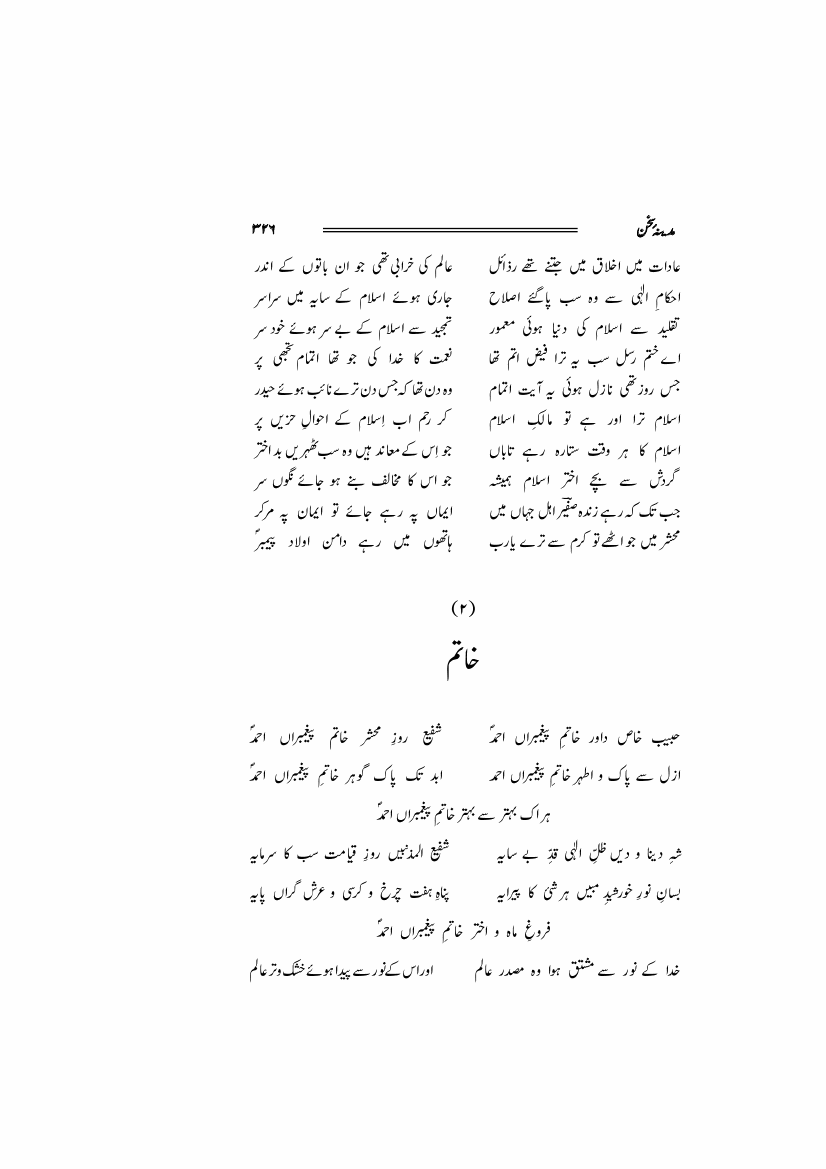 مدینۂ سخن ۳۲۶
عادات میں اخلاق میں جتنے تھے رذائل عالم کی خرابی تھی جو ان باتوں کے اندر
احکامِ الٰہی سے وہ سب پاگئے اصلاح جاری ہوئے اسلام کے سایہ میں سراسر
تقلید سے اسلام کی دنیا ہوئی معمور تمجید سے اسلام کے بے سر ہوئے خود سر
اے ختم رسل سب یہ ترا فیض اتم تھا نعمت کا خدا کی جو تھا اتمام تجھی پر
جس روز تھی نازل ہوئی یہ آیت اتمام وہ دن تھا کہ جس دن ترے نائب ہوئے حیدر
اسلام ترا اور ہے تو مالکِ اسلام کر رحم اب اِسلام کے احوالِ حزیں پر
اسلام کا ہر وقت ستارہ رہے تاباں جو اِس کے معاند ہیں وہ سب ٹھہریں بد اختر
گردش سے بچے اخترِ اسلام ہمیشہ جو اس کا مخالف بنے ہو جائے نگوں سر
جب تک کہ رہے زندہ صفیرؔ اہل جہاں میں ایماں پہ رہے جائے تو ایمان پہ مرکر
محشر میں جو اٹھے تو کرم سے ترے یارب ہاتھوں میں رہے دامن اولاد پیمبرؐ
(۲)
خاتم
حبیب خاص داور خاتمِ پیغمبراں احمدؐ شفیع روزِ محشر خاتم پیغمبراں احمدؐ
ازل سے پاک و اطہر خاتمِ پیغمبراں احمد ابد تک پاک گوہر خاتمِ پیغمبراں احمدؐ
ہر اک بہتر سے بہتر خاتمِ پیغمبراں احمدؐ
شہِ دینا و دیں ظلِّ الٰہی قدِّ بے سایہ شفیع المذنبیں روزِ قیامت سب کا سرمایہ
بسانِ نورِ خورشیدِ مبیں ہر شئ کا پیرایہ پناہِ ہفت چرخ و کرسی و عرش گراں پایہ
فروغِ ماہ و اختر خاتمِ پیغمبراں احمدؐ
خدا کے نور سے مشتق ہوا وہ مصدر عالم اور اس کے نور سے پیدا ہوئے خشک و تر عالم